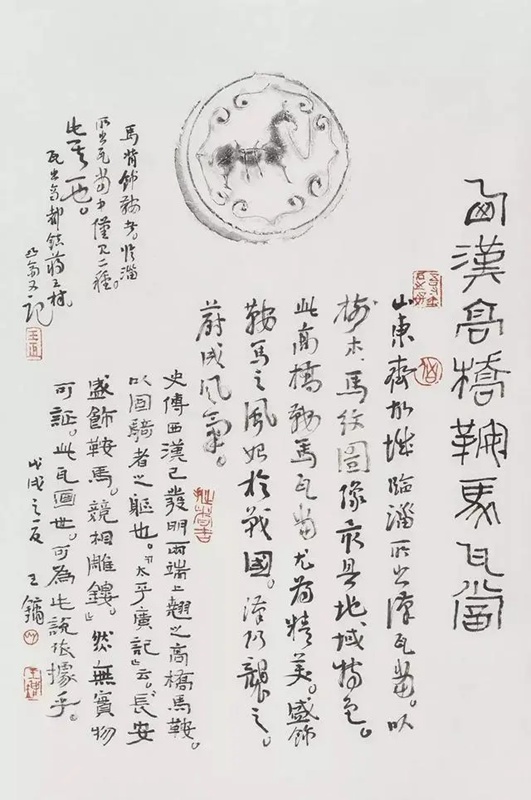 西漢高橋鞍馬瓦當
山東齊故城臨淄所出漢瓦當。以
樹木.馬紋圖像最具地域特色。
此高橋鞍馬瓦當尤為精美。盛飾
鞍馬之風始於戰國。漢仍襲之。
蔚成風氣。
史傳西漢已發明兩端上翹之高橋馬鞍。
以固騎者之軀也。「太平廣記」云。「長安
盛飾鞍馬。競相雕鏤。」然無實物
可証。此瓦面世。可為此說依據乎。
戊戌之夏 王鏞
馬背飾鞍者。臨淄
所出瓦當中僅見二種。
此其一也。
瓦出齊都鎮蔣王村
又記